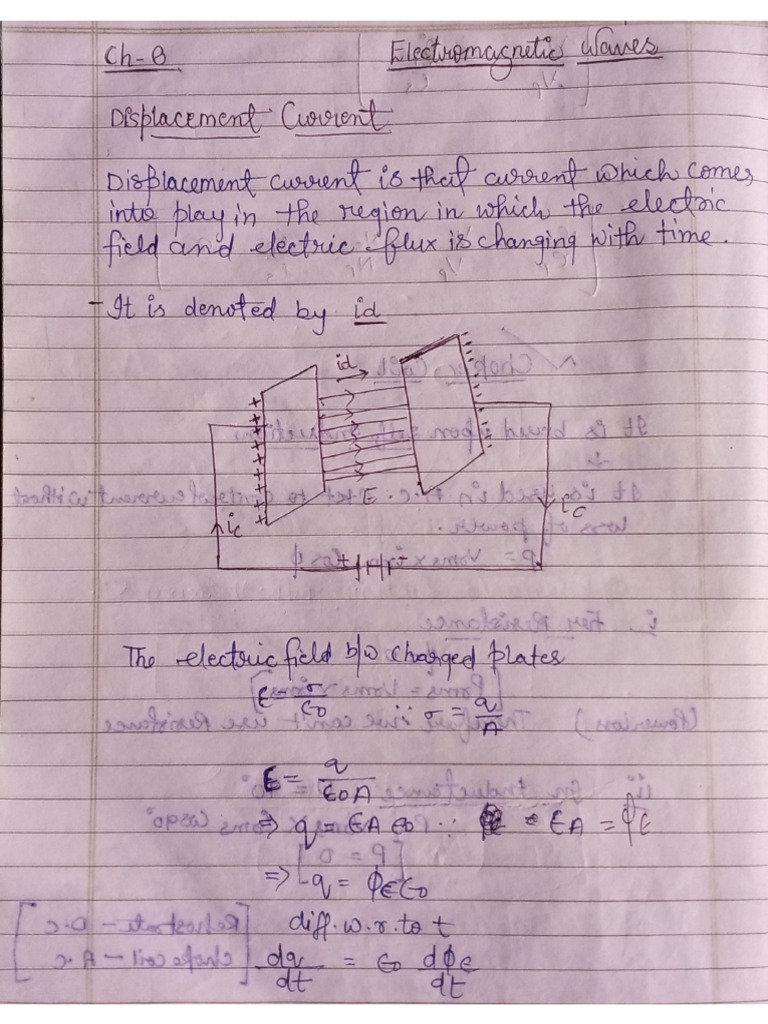 Ch-8 Electromagnetic Waves
Displacement Current
Displacement current is that current which comes
into play in the region in which the electric
field and electric flux is changing with time.
- It is denoted by id
id
+ + + + + + + + +
- - - - - - - -
E
ic
ic
+ -
The electric field b/w charged plates
E = σ/ε0 ∵ σ = q/A
E = q/ε0A
⇒ q = EA ε0 ∵ EA = ϕE
⇒ q = ϕE ε0
diff. w. r. to t
dq/dt = ε0 dϕE/dt